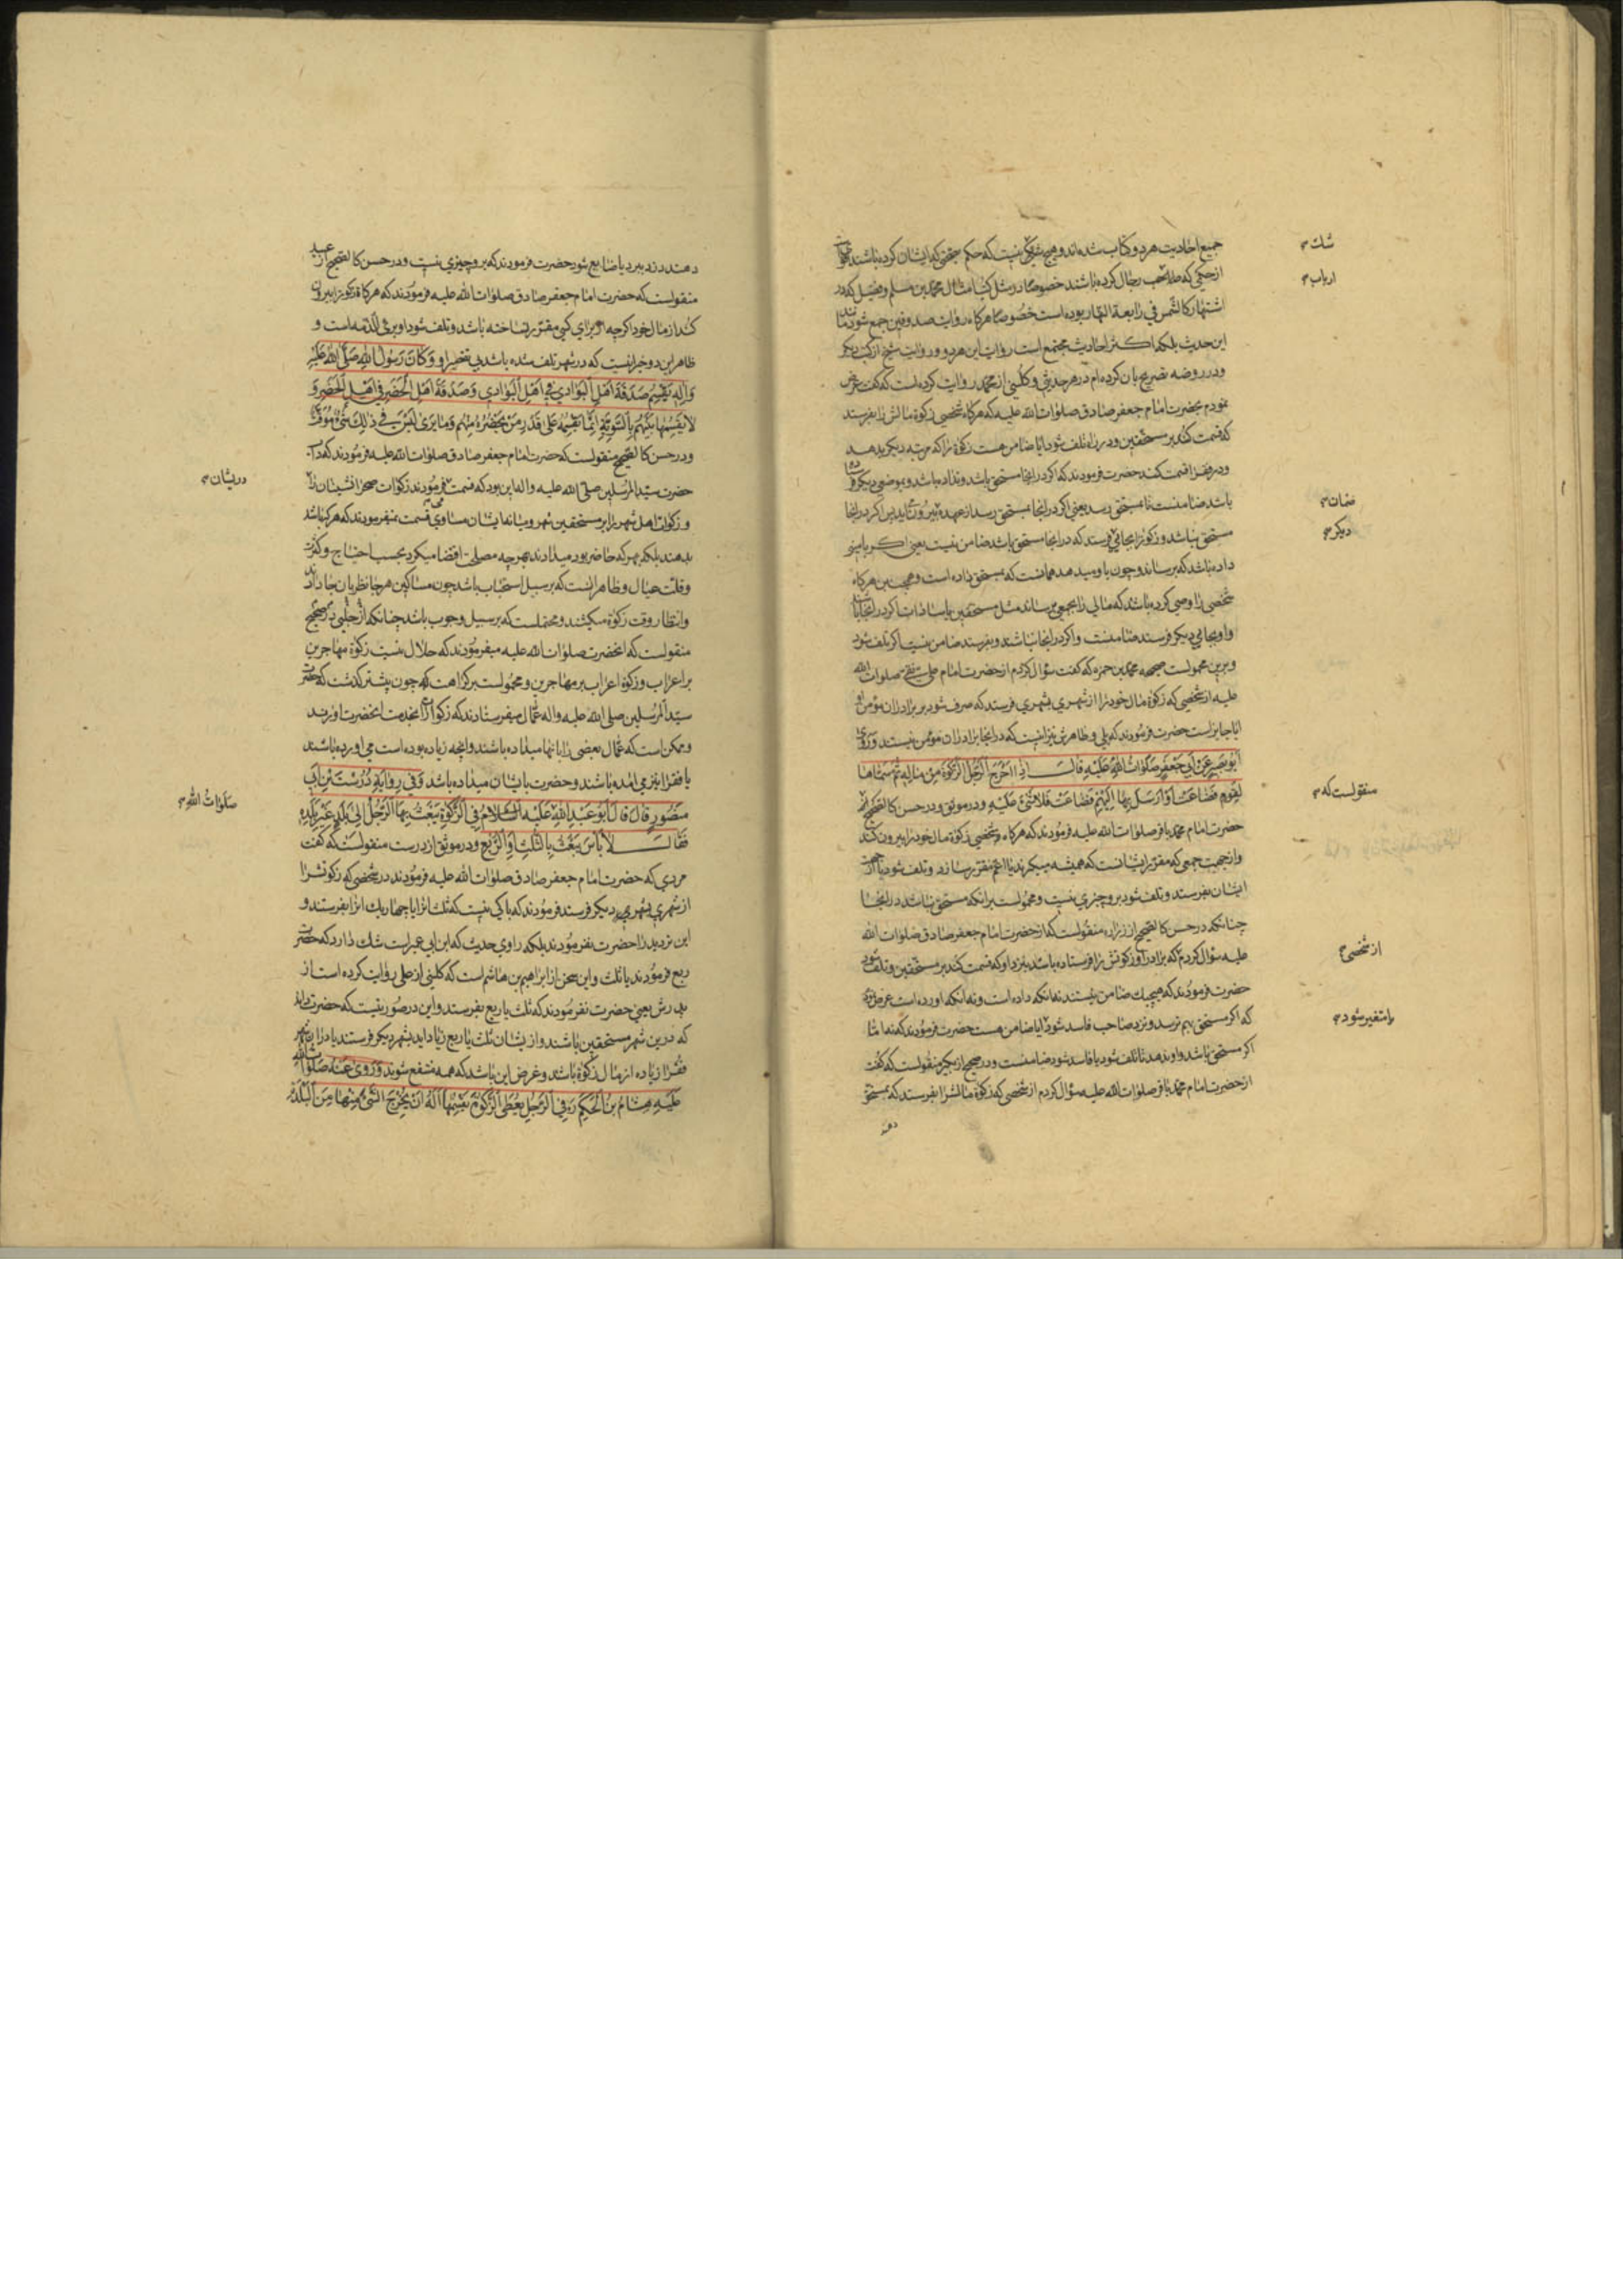 جمیع احادیث هر دو کتاب شده‌اند و هیچ شکی نیست که حکم بصحتی که ایشان کرده باشند
از حکمی که صاحب رجال کرده باشند خصوصا در مثل کتاب امثال محمد بن مسلم و فضیل که در
اشتهار کالشمس فی رابعة النهار بوده است خصوصا هرگاه روایت صدوقین جمع شود با
این حدیث بلکه اکثر احادیث مجتمع است روایات این هر دو و روایت شیخ از کتب دیگر
و در روضه تصریح بان کرده‌ام در هر حدیثی و کلینی از محمد روایت کرده است که گفت عرض
نمودم بحضرت امام جعفر صادق صلوات الله علیه که هرگاه شخصی زکوة مالش را بفرستد
که قسمت کنند بر مستحقین و در راه تلف شود ایا ضامن هست زکوة را که مرتبه دیگر بدهد
و در فقرا قسمت کند حضرت فرمودند که اگر در انجا مستحق باشد و نداده باشد و بموضعی دیگر
باشد ضامنست تا بمستحق رسد یعنی اگر در انجا بمستحق رسد از عهده بیرون اید پس اگر در انجا
مستحق نباشد و زکوة را بجائی فرستد که در انجا مستحق باشد ضامن نیست یعنی اگر بامینی
داده باشد که برساند و چون باو میدهد همانست که بمستحق داده است و همچنین هرگاه
شخصی را وصی کرده باشد که مالی را بجمعی برساند مثل مستحقین یا سادات اگر در انجا باشند
و او بجای دیگر فرستد ضامنست و اگر در انجا نباشند و بفرستد ضامن نیست اگر تلف شود
و برین محمولست صحیحه محمد بن حمزه که گفت سؤال کردم از حضرت امام علی نقی صلوات الله
علیه از شخصی که زکوة مال خود را از شهری بشهری فرستد که صرف شود بر برادران مؤمن او
ایا جایز است حضرت فرمودند که بلی و ظاهرش نیز اینست که در انجا برادران مؤمن نیستند وَرَوی
اَبُو بَصیرٍ عَنْ اَبی جَعْفَرٍ صَلَواتُ اللهِ عَلَیْهِ قالَ اِذا اَخْرَجَ الرَّجُلُ الزَّکوةَ مِنْ مالِهِ ثُمَّ سَمّاها
لِقَوْمٍ فَضاعَتْ اَوْ اَرْسَلَ بِها اِلَیْهِمْ فَضاعَتْ فَلا شَیْءَ عَلَیْهِ و در موثق و در حسن کالصحیح از
حضرت امام محمد باقر صلوات الله علیه فرمودند که هرگاه شخصی زکوة مال خود را بیرون کند
و از جهت جمعی که مقرر ایشانست که همیشه میگیرند یا اعم مقرر سازد و تلف شود یا از جهت
ایشان بفرستد و تلف شود بر او چیزی نیست و محمولست بر انکه مستحق نباشد در انجا
چنانکه در حسن کالصحیح از زراره منقولست که از حضرت امام جعفر صادق صلوات الله
علیه سؤال کردم که برادر او زکوتش را فرستاده باشد بنزد او که قسمت کند بر مستحقین و تلف شود
حضرت فرمودند که هیچیک ضامن نیستند نه انکه داده است و نه انکه اورده است عرض کردم
که اگر مستحق بهم نرسد و نزد صاحب فاسد شود ایا ضامن هست حضرت فرمودند که نه اما
اگر مستحق باشد و او ندهد تا تلف شود یا فاسد شود ضامنست و در صحیح از بکیر منقولست که گفت
از حضرت امام محمد باقر صلوات الله علیه سؤال کردم از شخصی که زکوة مالش را بفرستد که بمستحق
شك
ارباب
ضمان
دیگر
منقولست که
از شخصی
یا متغیر شود
دهند دزد ببرد یا ضایع شود حضرت فرمودند که بر او چیزی نیست و در حسن کالصحیح از عبید
منقولست که حضرت امام جعفر صادق صلوات الله علیه فرمودند که هرگاه زکوة را بیرون
کند از مال خود اگرچه از برای کسی مقرر نساخته باشد و تلف شود او برئ الذمه است و
ظاهر این دو خبر اینست که در شهر تلف شده باشد بی تقصیر او وَکانَ رَسُولُ اللهِ صَلَّی اللهُ عَلَیْهِ
وَآلِهِ یَقْسِمُ صَدَقَةَ اَهْلِ الْبَوادی فی اَهْلِ الْبَوادی وَصَدَقَةَ اَهْلِ الْحَضَرِ فی اَهْلِ الْحَضَرِ وَ
لا یَقْسِمُها بَیْنَهُمْ بِالسَّوِیَّةِ اِنَّما یَقْسِمُها عَلی قَدْرِ مَنْ یَحْضُرُهُ مِنْهُمْ وَما یَری لَیْسَ فی ذلِكَ شَیْءٌ مُوَقَّتٌ
و در حسن کالصحیح منقولست که حضرت امام جعفر صادق صلوات الله علیه فرمودند که داب
حضرت سید المرسلین صلی الله علیه و اله این بود که قسمت میفرمودند زکوات صحرانشینان را
و زکوات اهل شهر را بر مستحقین شهر و میانه ایشان مساوی قسمت نمیفرمودند که هر که باشد
بدهند بلکه بهر که حاضر بود میدادند بهر چه مصلحت اقتضا میکرد بحسب احتیاج و کثرت
و قلت عیال و ظاهر انست که بر سبیل استحباب باشد چون مساکین هر جا نظر بان جا دارند
و انتظار وقت زکوة میکشند و محتملست که بر سبیل وجوب باشد چنانکه از حلبی در صحیح
منقولست که انحضرت صلوات الله علیه میفرمودند که حلال نیست زکوة مهاجرین
بر اعراب و زکوة اعراب بر مهاجرین و محمولست بر کراهت که چون پیشتر گذشت که حضرت
سید المرسلین صلی الله علیه و اله عمال میفرستادند که زکوات را بخدمت انحضرت اورند
و ممکن است که عمال بعضی را بانها میداده باشند و انچه زیاده بوده است می اورده باشند
یا فقرا نیز می امده باشند و حضرت بایشان میداده باشد وَفی رِوایَةِ دُرُسْتَ بْنِ اَبی
مَنْصُورٍ قالَ قالَ اَبُو عَبْدِ اللهِ عَلَیْهِ السَّلامُ فِی الزَّکوةِ یَبْعَثُ بِهَا الرَّجُلُ اِلی بَلَدٍ غَیْرِ بَلَدِهِ
فَقالَ لا بَأْسَ یَبْعَثُ بِالثُّلْثِ اَوِ الرُّبْعِ و در موثق از درست منقولست که گفت
مردی که حضرت امام جعفر صادق صلوات الله علیه فرمودند در شخصی که زکوتش را
از شهری بشهری دیگر فرستد فرمودند که باکی نیست که ثلث انرا یا چهار یك انرا بفرستد و
این تردید را حضرت نفرمودند بلکه راوی حدیث که ابن ابی عمیر است شك دارد که حضرت
ربع فرمودند یا ثلث و این سخن از ابراهیم بن هاشم است که کلینی از علی روایت کرده است از
پدرش یعنی حضرت نفرمودند که ثلث یا ربع بفرستد و این در صورتیست که حضرت داند
که درین شهر مستحقین باشند و از یشان ثلث یا ربع زیاد اید بشهر دیگر فرستند یا در ان شهر
فقرا زیاده از مال زکوة باشد و غرض این باشد که همه منتفع شوند وَرَوی عَنْهُ صَلَواتُ اللهِ
عَلَیْهِ هِشامُ بْنُ الْحَکَمِ فِی الرَّجُلِ یُعْطَی الزَّکوةَ یَقْسِمُها اَلَهُ اَنْ یُخْرِجَ الشَّیْءَ مِنْها مِنَ الْبَلْدَةِ
دریشان
صَلَواتُ اللهِ